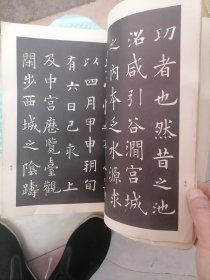 功者也然昔之池
沼咸引谷澗宮城
之内本乏水源求
以四月甲申朔旬
有六日己亥上
及中宮歷覽臺觀
閑步西城之陰躊